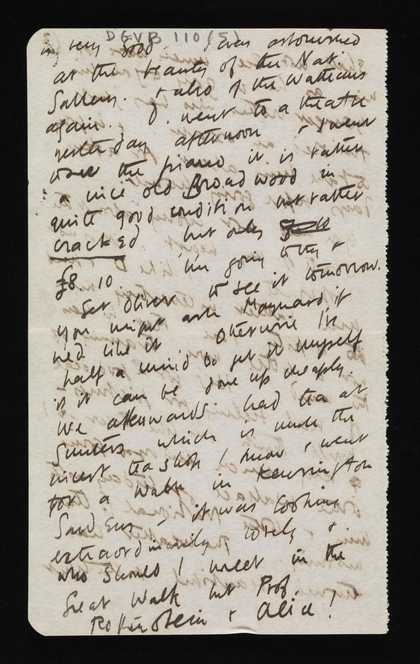 DGVB 110 (5)
is very good. I was astonished
at the beauty of the Nat.
Gallery. & also of the Watteaus
again. I went to a theatre
yesterday afternoon & went
over the piano it is rather
a nice old Broadwood in
quite good condition but rather
cracked, but only
£8.10 I'm going to try &
Get Oliver to see it tomorrow.
You might ask Maynard if
he'd like it Otherwise I've
half a mind to get it myself
if it can be done up cheaply.
We afterwards had tea at
Gunters which is much the
nicest tea shop I know & went
for a walk in Kensington
Gardens, it was looking
extraordinarily lovely &
who should I meet in the
Great Walk but Prof.
Rothenstein & Alice!